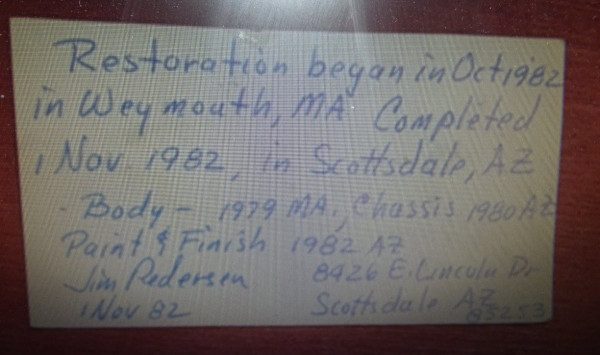 Restoration began in Oct 1982
in Weymouth, MA Completed
1 Nov. 1982, in Scottsdale, AZ
- Body - 1979 MA., Chassis 1980 AZ
Paint & Finish 1982 AZ
Jim Pedersen 8426 E. Lincoln Dr
1 Nov 82 Scottsdale AZ
85253